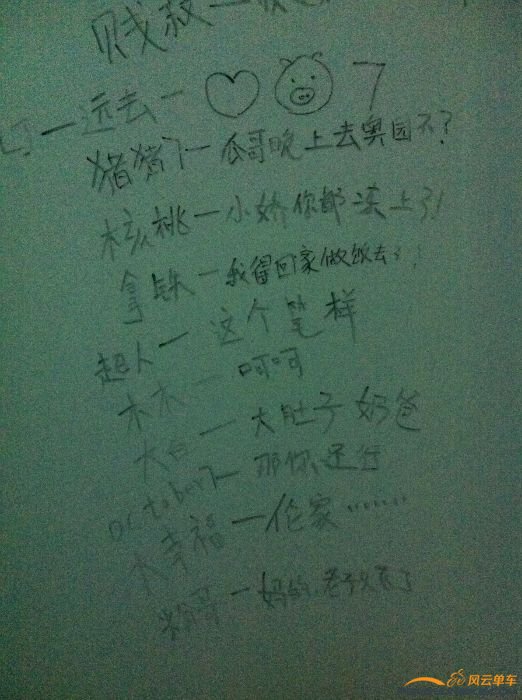 贱敌一
一远去一♡ 7
猪猪7一瓜哥晚上去奥园不?
核桃一小娇你都 上了!
拿铁一我得回家做饭去了!
超人一这个笔样
木木一呵呵
大白一大肚子奶爸
october7一那你还行
木幸福一伦家……
粉哥一妈的,老子又 了
风云单车